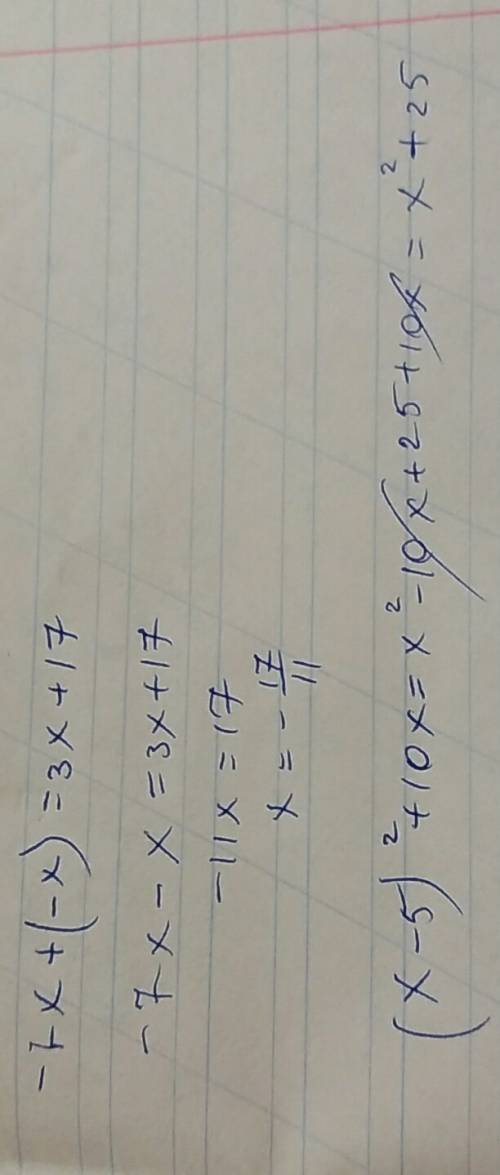 -7x+(-x)=3x+17
-7x-x=3x+17
-11x=17
x=-17/11
(x-5)²+10x=x²-10x+25+10x=x²+25